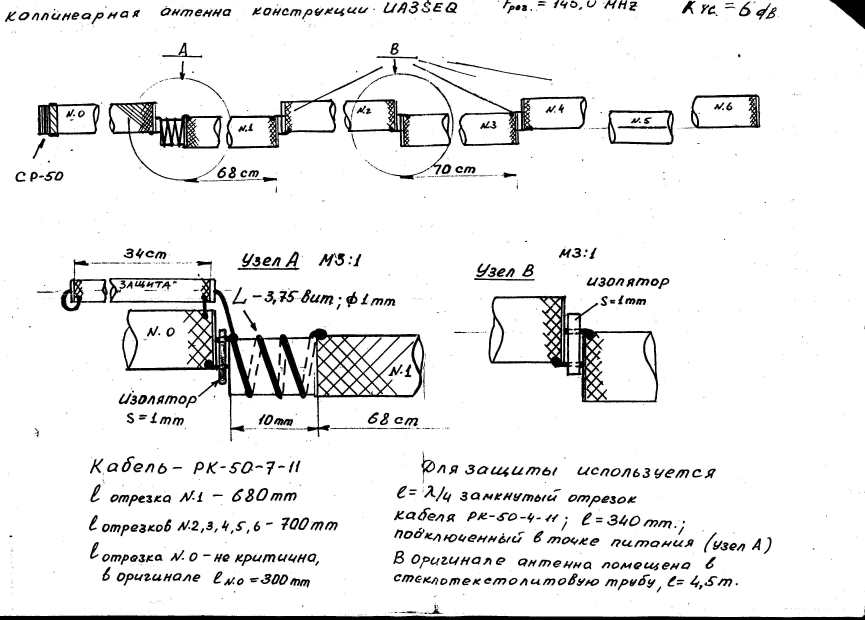 Коллинеарная антенна конструкции UA3SEQ Fрез. = 145,0 MHz Kус. = 6 дв
A
B
N.0
N.1
N.2
N.3
N.4
N.5
N.6
СР-50
68 cm
70 cm
34 cm
Узел А М3:1
"ЗАЩИТА"
L – 3,75 вит; ф 1 mm
N.0
N.1
Изолятор
S = 1 mm
10 mm
68 cm
М3:1
Узел В
изолятор
S = 1 mm
Кабель – РК-50-7-11
l отрезка N.1 – 680 mm
l отрезков N.2,3,4,5,6 – 700 mm
l отрезка N.0 – не критична,
в оригинале l N.0 = 300 mm
Для защиты используется
l = λ/4 замкнутый отрезок
кабеля РК-50-4-11; l = 340 mm.;
подключенный в точке питания (узел А)
В оригинале антенна помещена в
стеклотекстолитовую трубу, l = 4,5 m.